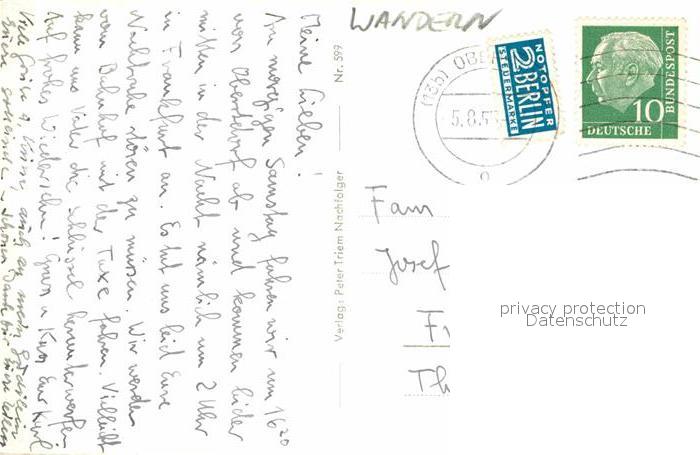 WANDERN
Meine Lieben!
Am morgigen Samstag fahren wir um 16²⁰
von Oberstdorf ab und kommen leider
mitten in der Nacht nämlich um 2 Uhr
in Frankfurt an. Es tut uns leid Eure
Nachtruhe stören zu müssen. Wir werden
vom Bahnhof mit der Taxe fahren. Vielleicht
kann uns Vater die Schlüssel herunterwerfen
Auf frohes Wiedersehen! Gruss u Kuss Eur Karl
Viele Grüsse u. Küsse auch
Nr. 599
Verlag: Peter Triem Nachfolger
(13b) OBE
5.8.5
NOTOPFER
2 BERLIN
STEUERMARKE
10
DEUTSCHE
BUNDESPOST
Fam
Josef
F
Th
privacy protection
Datenschutz